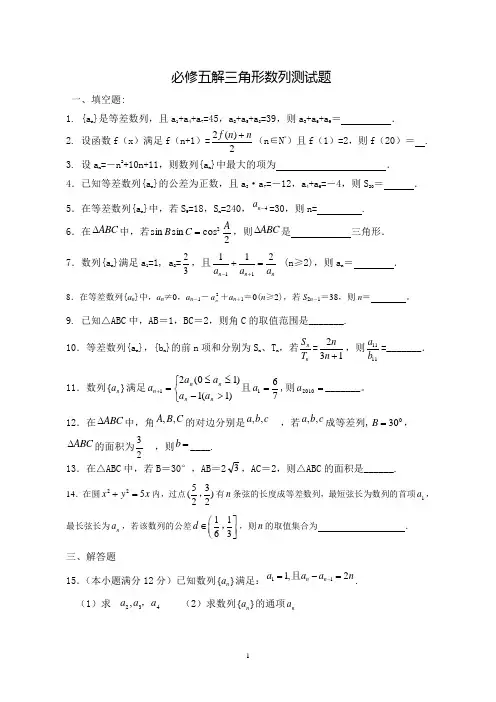 必修五解三角形数列测试题
一、填空题:
1. {aₙ}是等差数列，且a₁+a₄+a₇=45，a₂+a₅+a₈=39，则a₃+a₆+a₉＝ .
2. 设函数f（x）满足f（n+1）=\frac{2f(n)+n}{2}（n∈N*）且f（1）=2，则f（20）＝ .
3. 设aₙ=－n²+10n+11，则数列{aₙ}中最大的项为 .
4．已知等差数列{aₙ}的公差为正数，且a₃·a₇=－12，a₄+a₆=－4，则S₂₀＝ .
5．在等差数列{aₙ}中，若S₉=18，Sₙ=240，aₙ₋₄=30，则n= .
6．在∆ABC中，若sin B sin C = cos²\frac{A}{2}，则∆ABC是 三角形.
7．数列{aₙ}满足a₁=1, a₂=\frac{2}{3}，且\frac{1}{aₙ₋₁}+\frac{1}{aₙ₊₁}=\frac{2}{aₙ} (n≥2)，则aₙ＝ .
8．在等差数列{aₙ}中，aₙ≠0，aₙ₋₁－aₙ²＋aₙ₊₁＝0(n≥2)，若S₂ₙ₋₁＝38，则n＝ 。
9. 已知△ABC中，AB＝1，BC＝2，则角C的取值范围是_______.
10．等差数列{aₙ}，{bₙ}的前n项和分别为Sₙ、Tₙ，若\frac{Sₙ}{Tₙ}=\frac{2n}{3n+1}，则\frac{a₁₁}{b₁₁}=_______.
11．数列{aₙ}满足aₙ₊₁={2aₙ(0≤aₙ≤1) aₙ-1(aₙ>1) 且a₁=\frac{6}{7},则a₂₀₁₀=_______。
12．在∆ABC中，角A,B,C的对边分别是a,b,c ，若a,b,c成等差列,B=30⁰，
∆ABC的面积为\frac{3}{2} ，则b=____.
13．在△ABC中，若B＝30°，AB＝2√3，AC＝2，则△ABC的面积是______.
14．在圆x²+y²=5x内，过点(\frac{5}{2},\frac{3}{2})有n条弦的长度成等差数列，最短弦长为数列的首项a₁，
最长弦长为aₙ，若该数列的公差d∈(\frac{1}{6},\frac{1}{3}]，则n的取值集合为 .
三、解答题
15．（本小题满分12分）已知数列{aₙ}满足：a₁=1,且aₙ-aₙ₋₁=2n．
（1）求 a₂,a₃，a₄ （2）求数列{aₙ}的通项aₙ
1